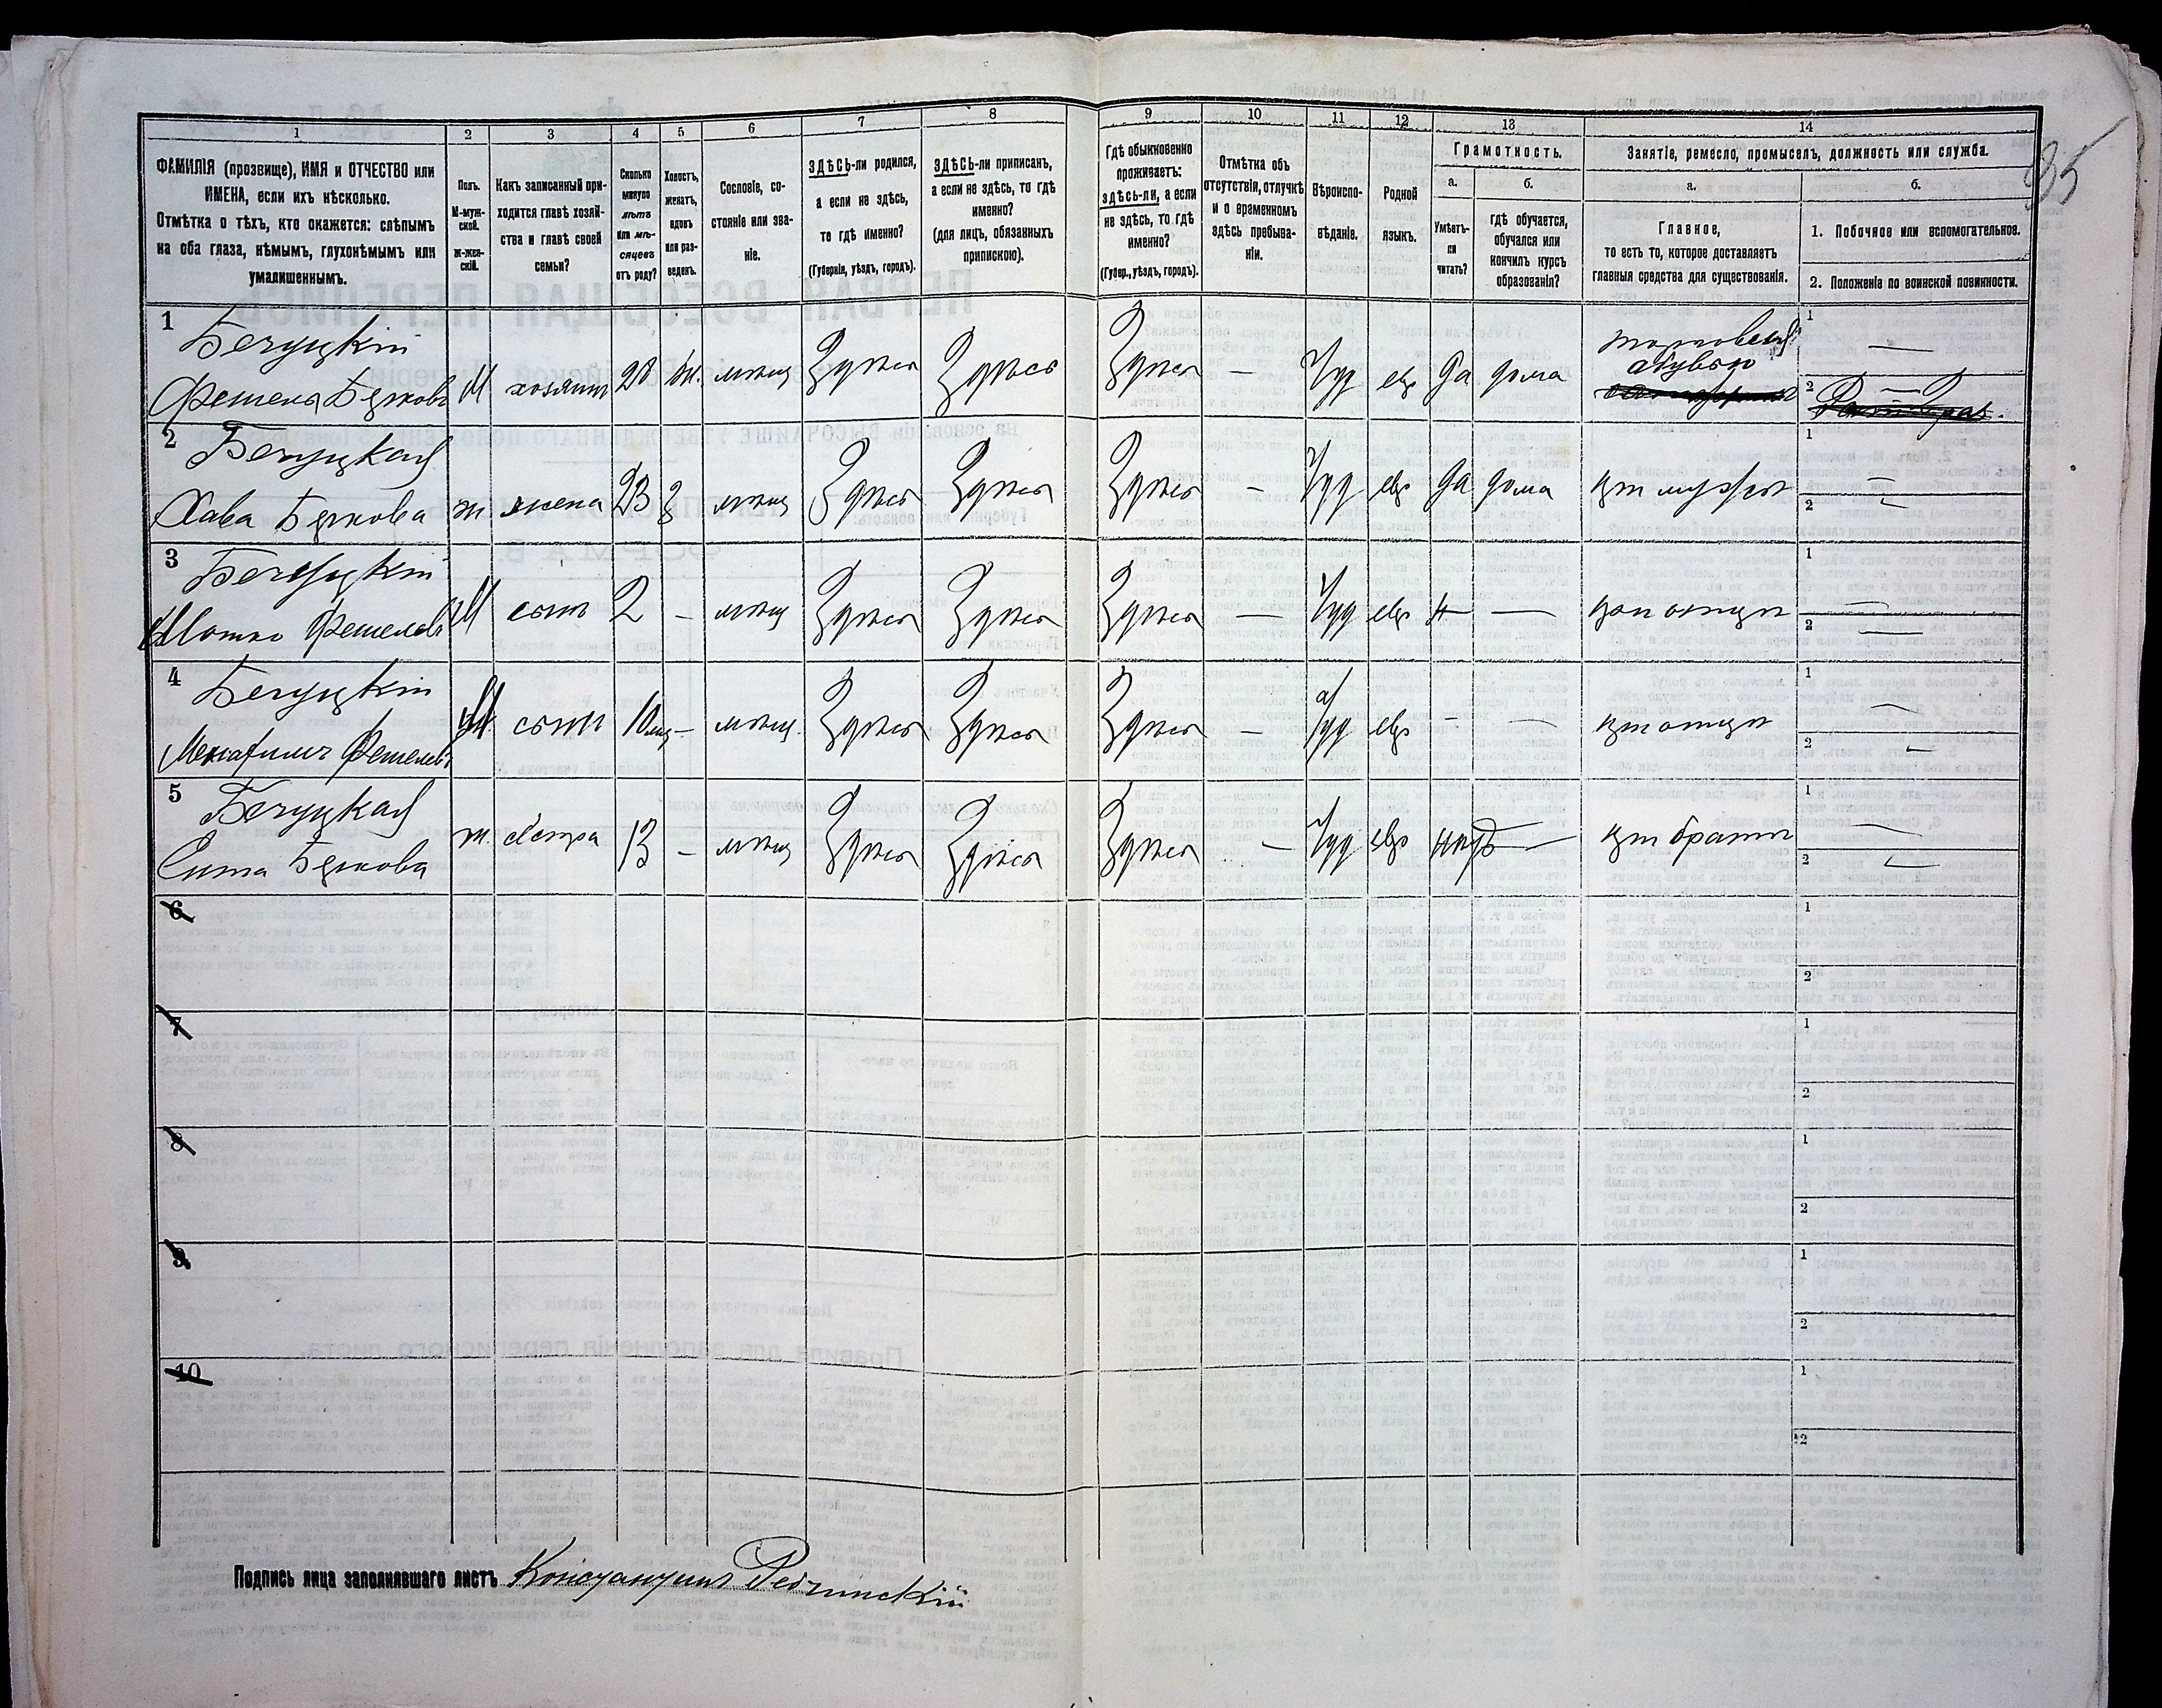 85
1 2 3 4 5 6 7 8 9 10 11 12 13 14
ФАМИЛІЯ (прозвище), ИМЯ и ОТЧЕСТВО или
ИМЕНА, если ихъ нѣсколько.
Отмѣтка о тѣхъ, кто окажется: слѣпымъ
на оба глаза, нѣмымъ, глухонѣмымъ или
умалишеннымъ.
Полъ.
М-муж-
ской.
Ж-жен-
скій.
Какъ записанный при-
ходится главѣ хозяй-
ства и главѣ своей
семьи?
Сколько
минуло
лѣтъ
или мѣ-
сяцевъ
отъ роду?
Холостъ,
женатъ,
вдовъ
или раз-
веденъ.
Сословіе, со-
стояніе или зва-
ніе.
ЗДѢСЬ-ли родился,
а если не здѣсь,
то гдѣ именно?
(Губернія, уѣздъ, городъ).
ЗДѢСЬ-ли приписанъ,
а если не здѣсь, то гдѣ
именно?
(для лицъ, обязанныхъ
припискою).
Гдѣ обыкновенно
проживаетъ:
здѣсь-ли, а если
не здѣсь, то гдѣ
именно?
(Губер., уѣздъ, городъ).
Отмѣтка объ
отсутствіи, отлучкѣ
и о временномъ
здѣсь пребыва-
ніи.
Вѣроиспо-
вѣданіе.
Родной
языкъ.
Грамотность.
а. б.
Умѣетъ-
ли
читать?
гдѣ обучается,
обучался или
кончилъ курсъ
образованія?
Занятіе, ремесло, промыселъ, должность или служба.
а. б.
Главное,
то есть то, которое доставляетъ
главныя средства для существованія.
1. Побочное или вспомогательное.
2. Положеніе по воинской повинности.
1 Бечуцкій
М хозяинъ 28 ж. мѣщ Здѣсь Здѣсь Здѣсь — Іуд евр да дома
обувью
1 —
2 —
2 Бечуцкая
Хава Беркова ж. жена 23 з мѣщ Здѣсь Здѣсь Здѣсь — Іуд евр да дома при мужѣ
1 —
2 —
3 Бечуцкій
М сынъ 2 — мѣщ Здѣсь Здѣсь Здѣсь — Іуд евр н — при отцѣ
1 —
2 —
4 Бечуцкій
М. сынъ 10 мѣс — мѣщ. Здѣсь Здѣсь Здѣсь — Іуд евр — — при отцѣ
1 —
2 —
5 Бечуцкая
Сима Беркова ж. сестра 13 — мѣщ Здѣсь Здѣсь Здѣсь — Іуд евр нѣтъ — при братѣ
1 —
2 —
6 1
2
7 1
2
8 1
2
9 1
2
10 1
2
Подпись лица заполнявшаго листъ Константинъ